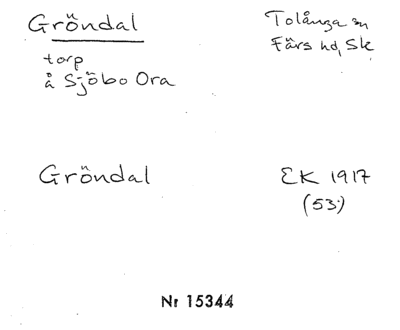 Gröndal
Tolånga sn
Färs hd, Sk
torp
å Sjöbo Ora
Gröndal
EK 1917
(53)
Nr 15344